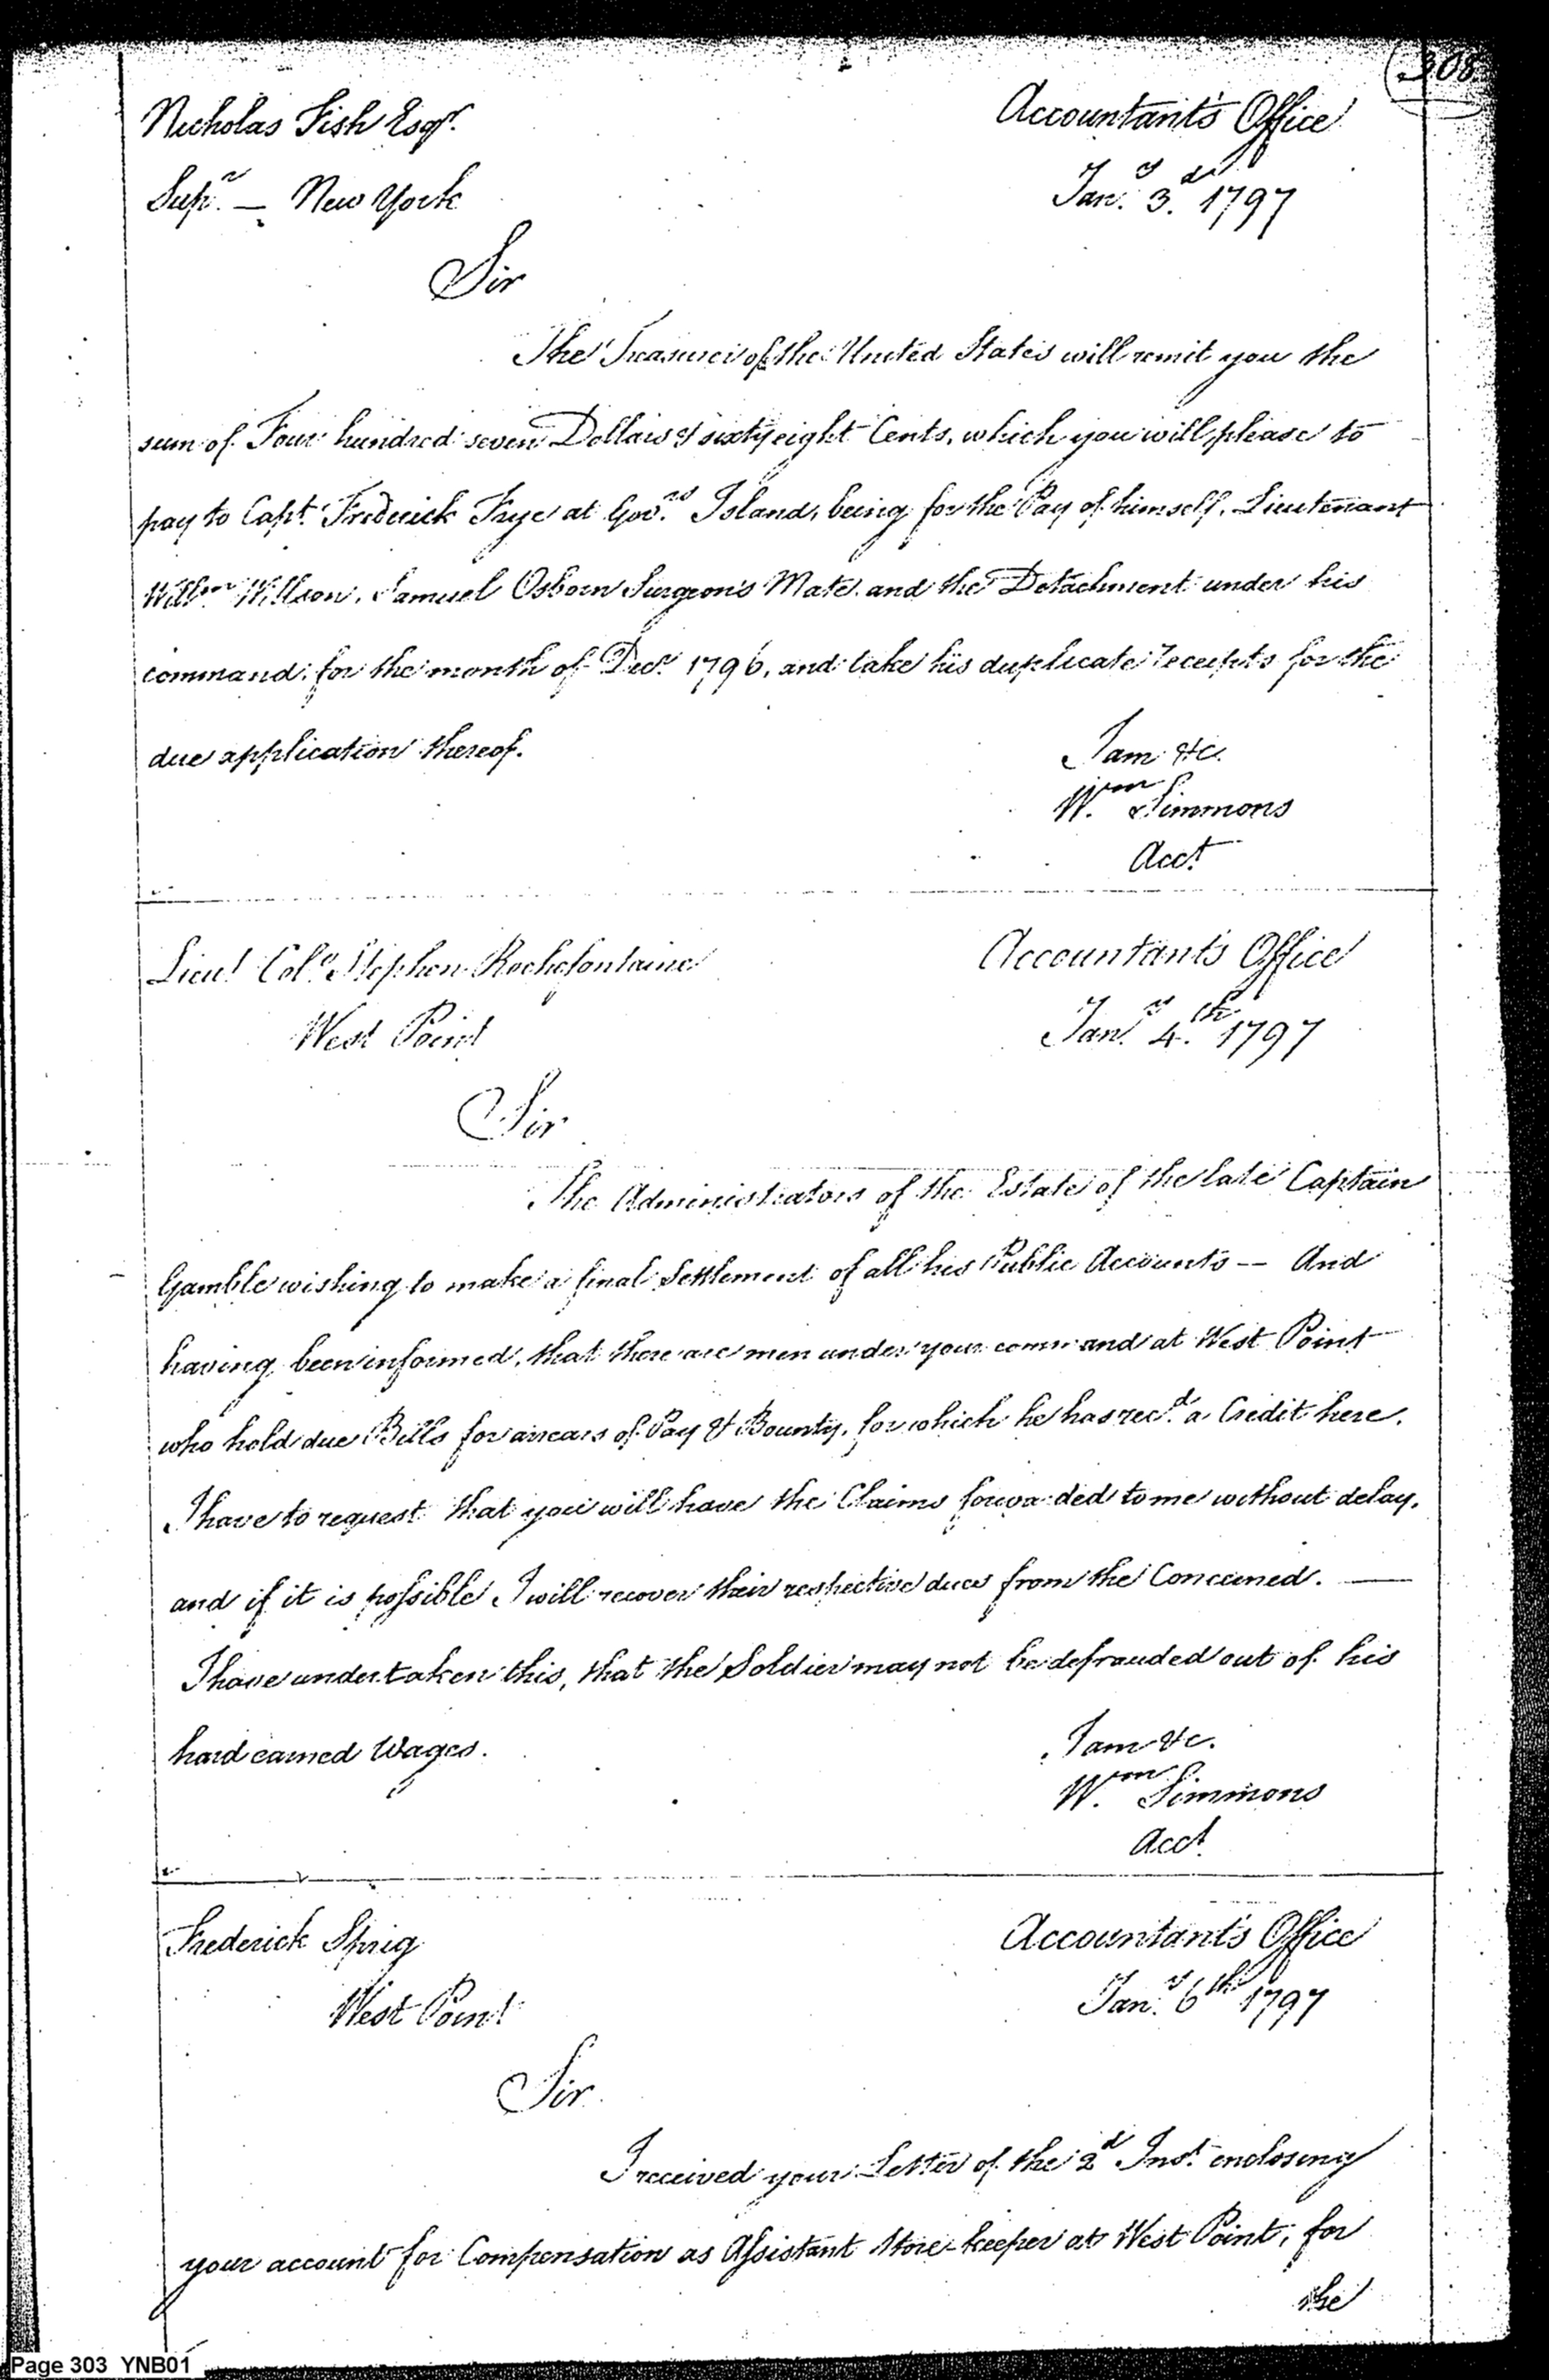 308
Nicholas Fish Esqr. Accountant's Office
Supr. — New York Jany. 3d. 1797
Sir
The Treasurer of the United States will remit you the
sum of Four hundred seven Dollars & sixty eight Cents, which you will please to
pay to Capt. Frederick Frye at Govrs. Island, being for the Pay of himself, Lieutenant
Willm. Willson, Samuel Osborn Surgeon's Mate and the Detachment under his
command for the month of Decr. 1796, and take his duplicate receipts for the
due application thereof.
I am &c.
Wm. Simmons
Acct.
Lieut Colo. Stephen Rochefontaine Accountant's Office
West Point Jany. 4th. 1797
Sir
The Administrators of the Estate of the late Captain
Gamble wishing to make a final Settlement of all his Public Accounts — And
having been informed, that there are men under your command at West Point
who hold due Bills for arrears of Pay & Bounty, for which he has recd. a Credit here.
I have to request that you will have the Claims forwarded to me without delay,
and if it is possible I will recover their respective dues from the Concerned. —
I have undertaken this, that the Soldier may not be defrauded out of his
hard earned Wages.
I am &c.
Wm. Simmons
Acct.
Frederick Sprig Accountant's Office
West Point Jany. 6th 1797
Sir
I received your Letter of the 2d Inst. enclosing
your account for Compensation as Assistant Store-keeper at West Point, for
the
Page 303 YNB01